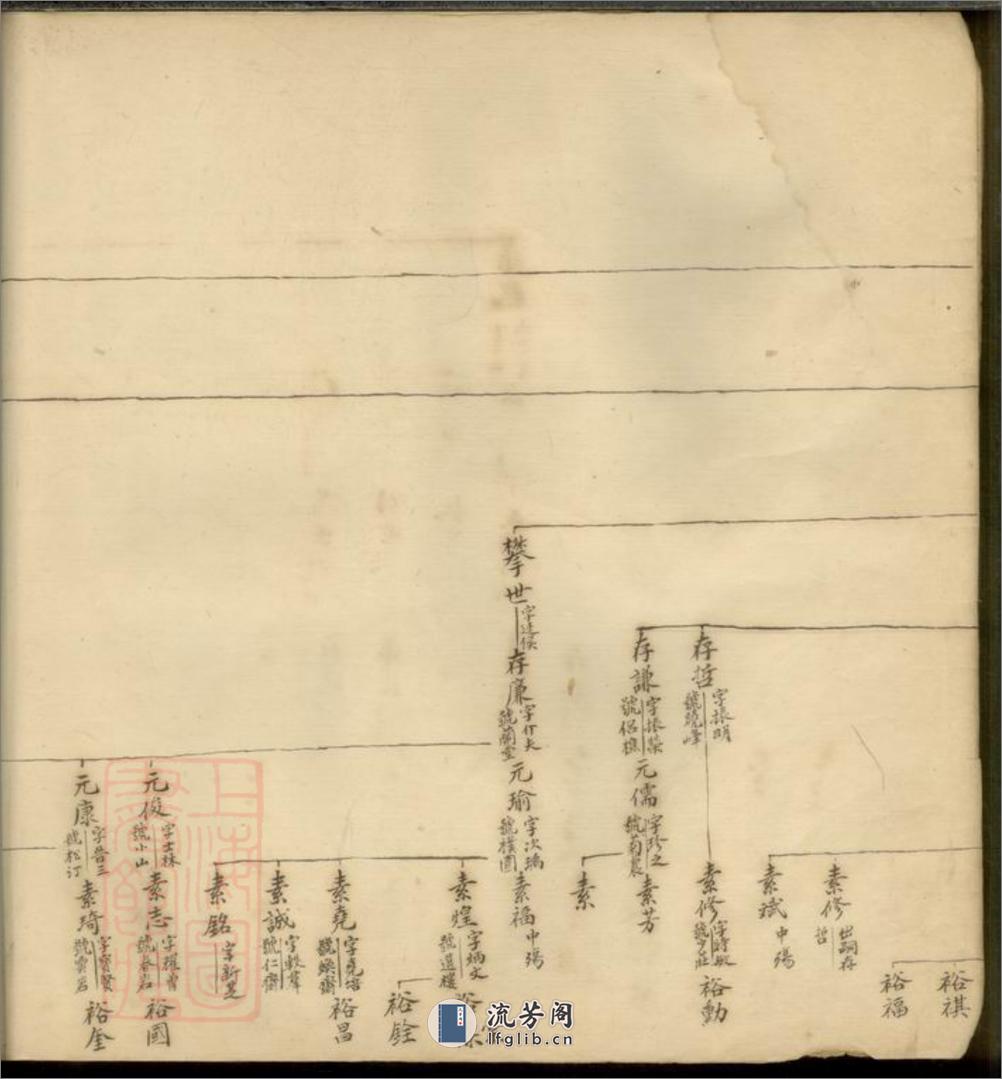 裕祺
裕福
素修
出嗣存哲
素斌
中殤
存哲
字振明
號曉峰
素修
字時敏
號少莊
裕勳
存謙
字振榮
號侶樵
元儒
字珍之
號菊農
素芳
素
攀世
存廉
號蘭堂
元瑜
字次瑀
號樸園
素福
中殤
素煌
字炳文
裕銓
素堯
字堯階
號煥齋
裕昌
素誠
號仁齋
素銘
字新芝
元俊
字士林
號小山
素志
號春岩
裕國
元康
字晉三
號松汀
素琦
字寶賢
號雲岩
裕奎
上海圖書館藏
流芳阁
lfglib.cn